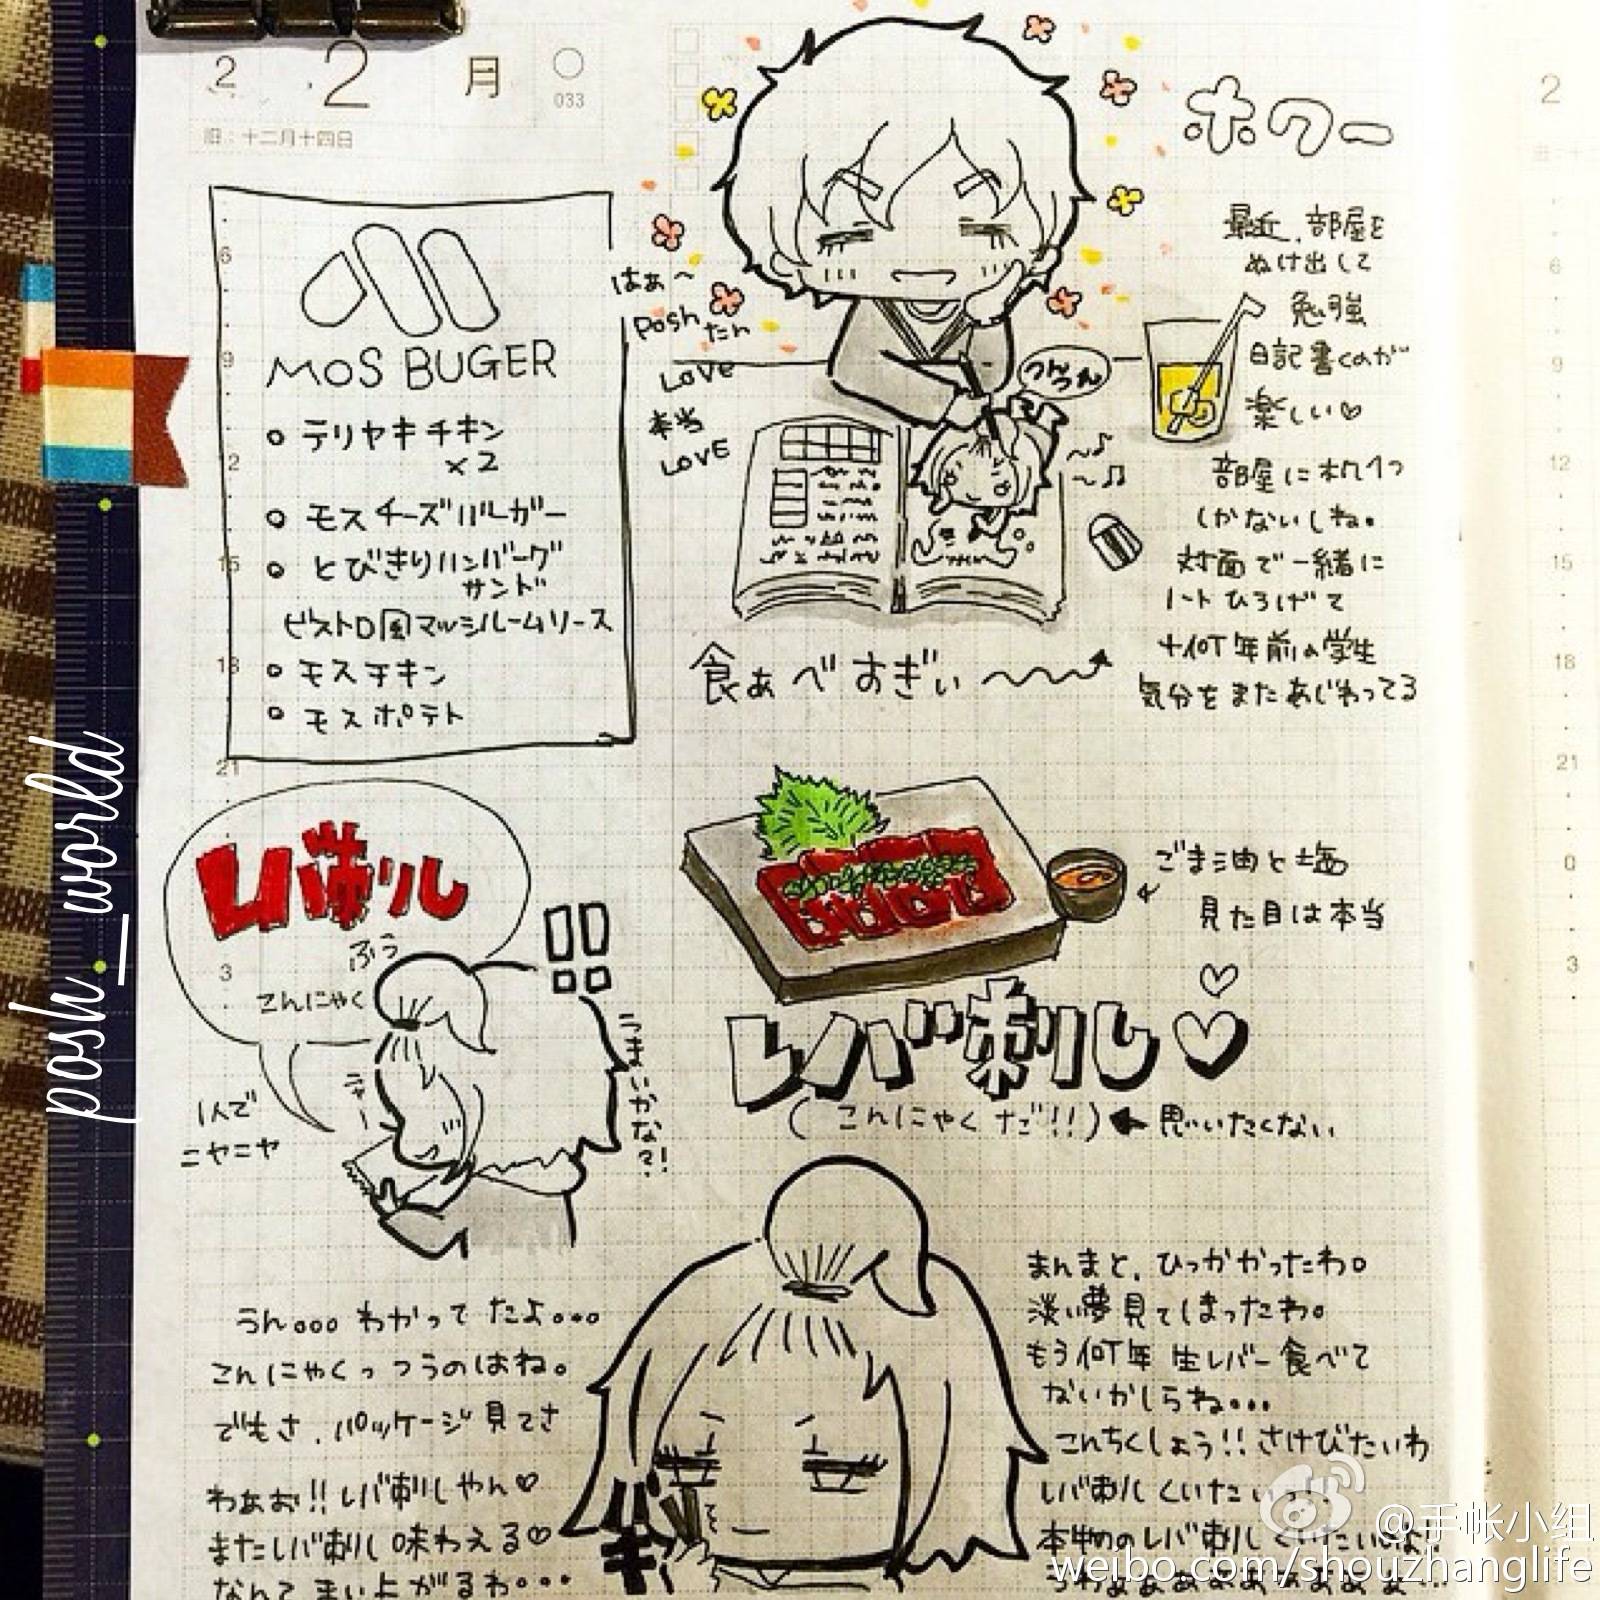 2
2
月
033
旧：十二月十四日
ホワー
MOS BUGER
テリヤキチキン
×2
モスチーズバーガー
とびきりハンバーグ
サンド
ビストロ風マッシュルームソース
モスチキン
モスポテト
はぁ〜
Poshたん
LOVE
本当
LOVE
つんつん
最近、部屋を
ぬけ出して
勉強
日記書くのが
楽しい♡
部屋に机1つ
しかないしね。
対面で一緒に
ノートひろげて
十何年前の学生
気分をまたあじわってる
食ぁべすぎぃ
6
9
12
15
18
21
3
2
6
9
12
15
18
21
0
3
レバ刺し
ふう
こんにゃく
1人で
ニヤニヤ
うまいかな?!
ごま油と塩
見た目は本当
レバ刺し♡
(こんにゃくだ!!)←思いたくない
うん。。。わかってたよ。。。
こんにゃくっつうのはね。
でもさ、パッケージ見てさ
わぁお!!レバ刺しやん♡
またレバ刺し味わえる♡
なんてまい上がるわ。。。
まんまと、ひっかかったわ。
淡い夢見てしまったわ。
もう何年生レバー食べて
ないかしらね。。。
こんちくしょう!!さけびたいわ
レバ刺しくいたい
本物のレバ刺しくいたいよ
うわぁぁぁぁぁぁぁぁぁ
posh_world
@手帐小组
weibo.com/shouzhanglife